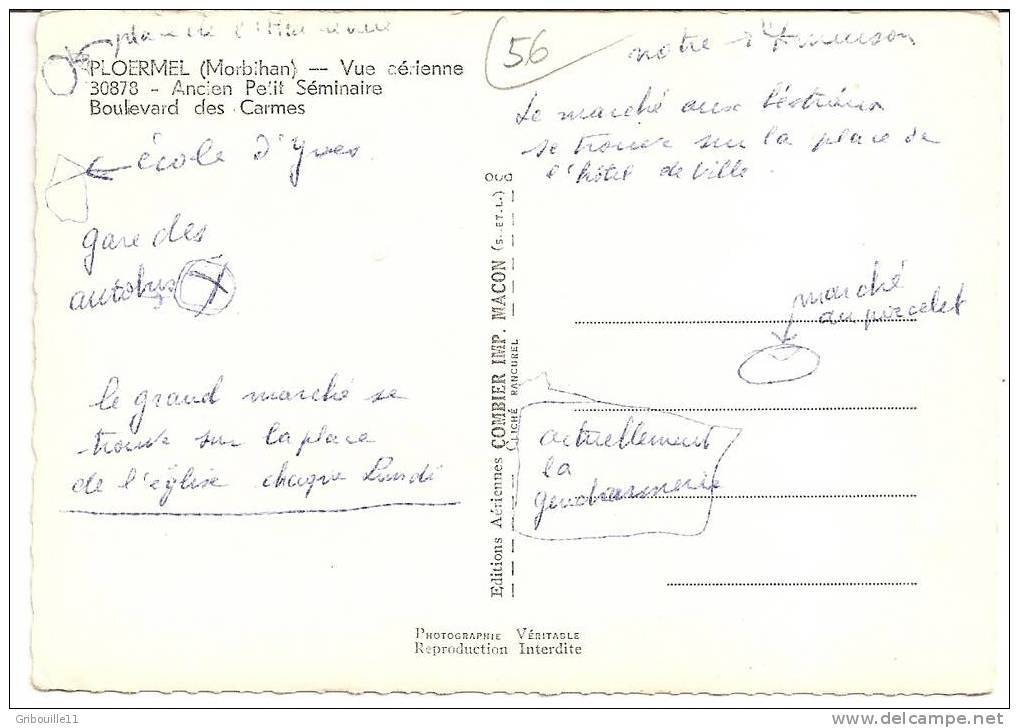 PLOERMEL (Morbihan) — Vue aérienne
30878 - Ancien Petit Séminaire
Boulevard des Carmes
école d'Yves
gare des
autobus
le grand marché se
trouve sur la place
de l'église chaque Lundi
56
notre
Le marché aux bestiaux
se trouve sur la place de
l'hôtel de Ville.
marché
au porcelet
actuellement
la
gendarmerie
Editions Aériennes COMBIER IMP. MACON (S.-ET.-L.)
CLICHÉ RANCUREL
PHOTOGRAPHIE VÉRITABLE
Reproduction Interdite
Gribouille11
http://www.delcampe.net